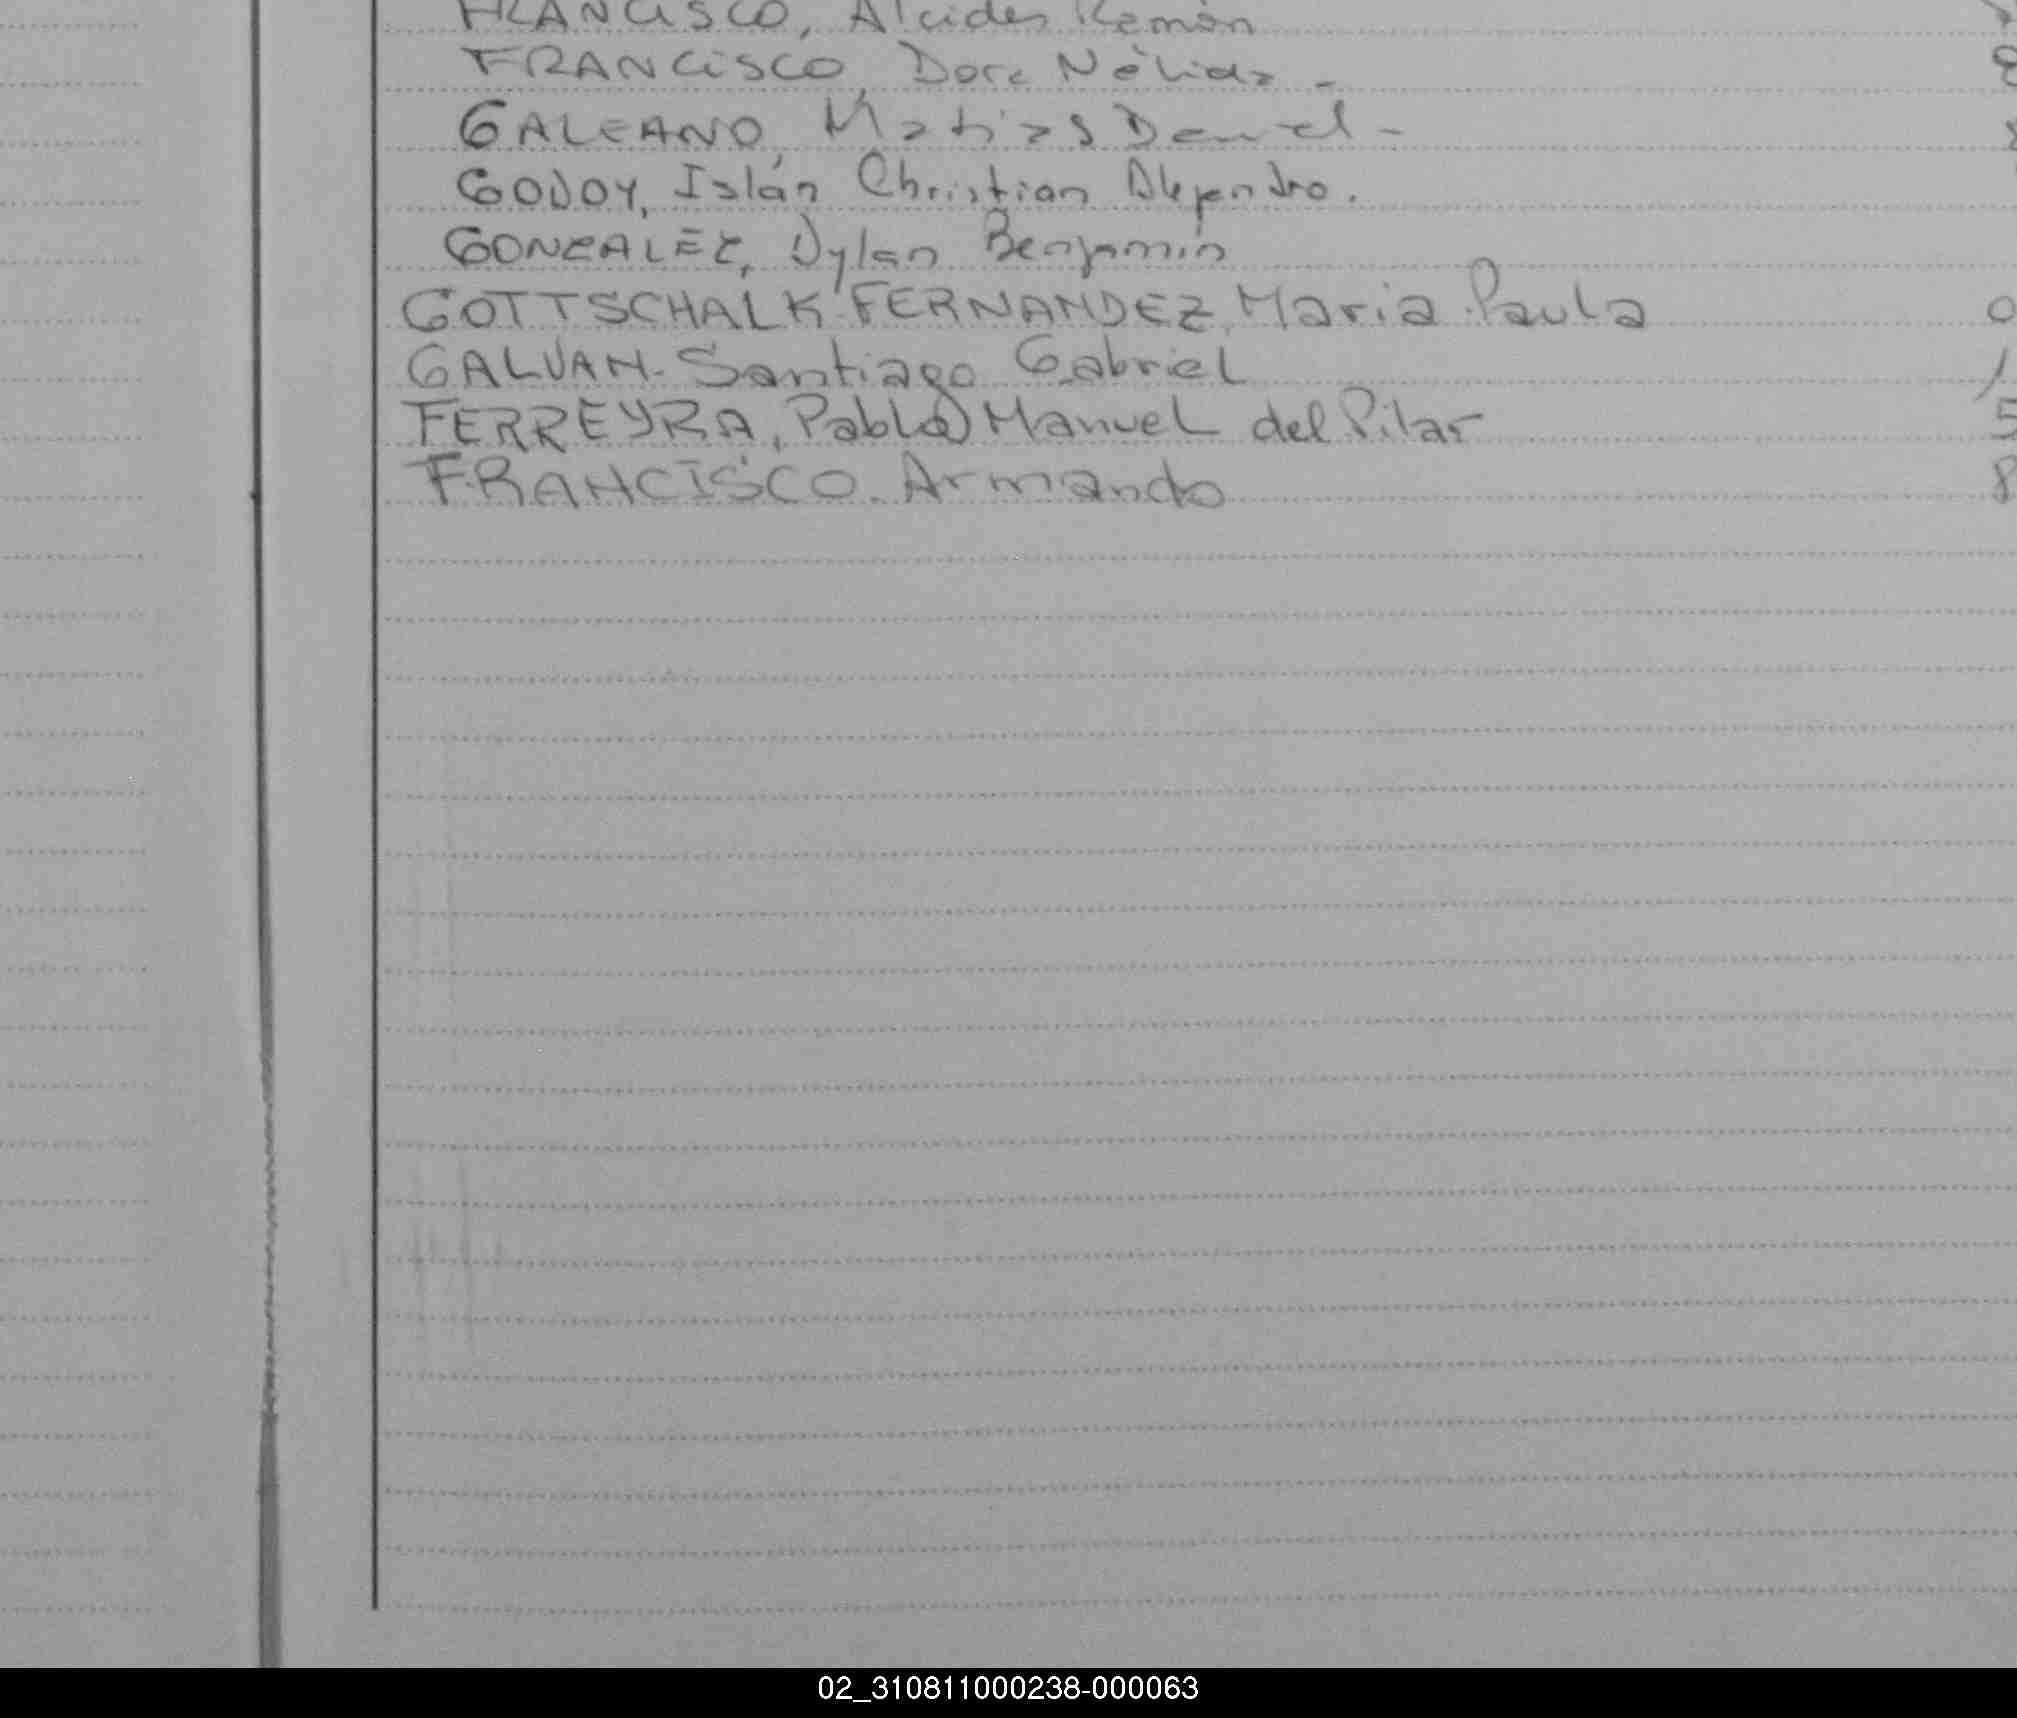 FRANCISCO, Alcides Ramón
FRANCISCO, Dora Nélida -
GALEANO, Matias Daniel -
GODOY, Islán Christian Alejandro.
GONZALEZ, Dylan Benjamin
GOTTSCHALK FERNANDEZ, Maria Paula 0
GALVAN - Santiago Gabriel 1
FERREYRA, Pablo Manuel del Pilar 5
FRANCISCO. Armando 8
02_310811000238-000063